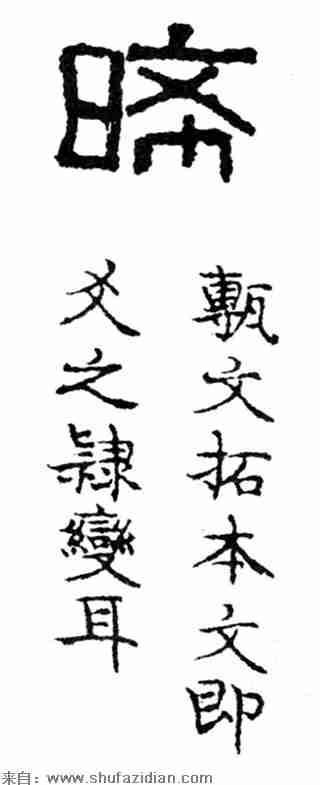 晞
甎文拓本文即
爻之隸變耳
来自：www.shufazidian.com